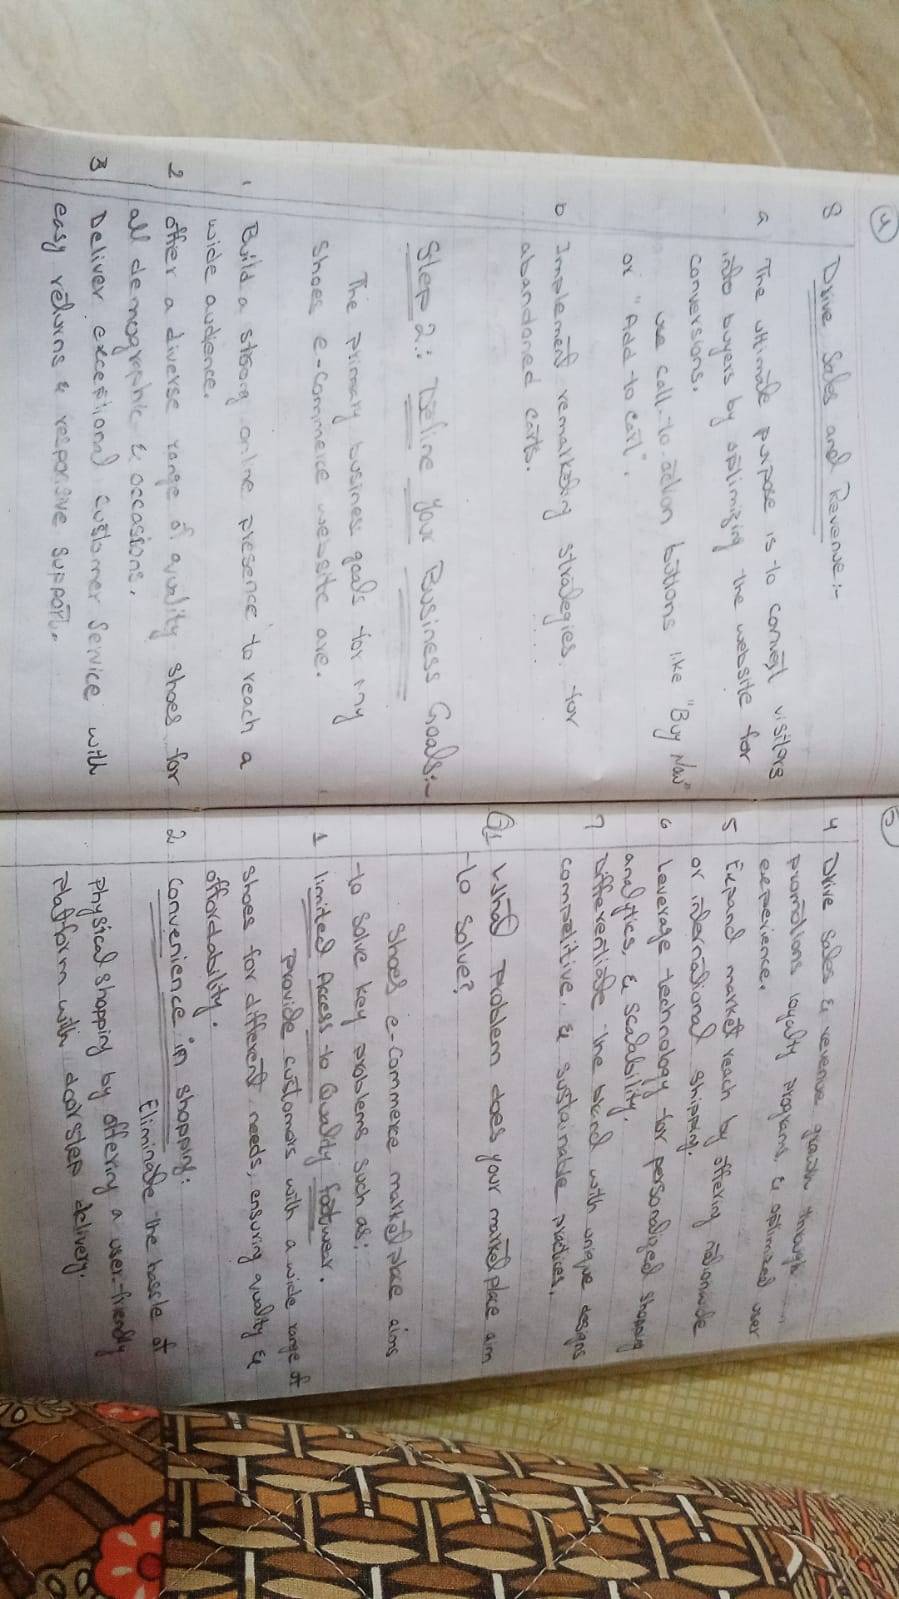 4
8 Drive Sales and Revenue:-
a The ultimate purpose is to convert visitors
into buyers by optimizing the website for
conversions.
use call-to-action buttons like "Buy Now"
or "Add to Cart".
b Implement remarketing strategies for
abandoned carts.
Step 2: Define Your Business Goals:-
The primary business goals for my
Shoes e-commerce website are.
1 Build a strong online presence to reach a
wide audience.
2 offer a diverse range of quality shoes for
all demographic & occasions.
3 Deliver exceptional customer service with
easy returns & responsive support.
5
4 Drive sales & revenue growth through
promotions loyalty programs, & optimized user
experience.
5 Expand market reach by offering nationwide
or international shipping.
6 Leverage technology for personalized shopping
analytics, & scalability.
7 Differentiate the brand with unique designs
competitive, & sustainable practices.
Q1 What problem does your market place aim
to solve?
Shoes e-Commerce market place aims
to solve key problems such as:
1 limited Access to Quality footwear.
provide customers with a wide range of
shoes for different needs, ensuring quality &
affordability.
2 Convenience in shopping:
Eliminate the hassle of
physical shopping by offering a user-friendly
platform with doorstep delivery.